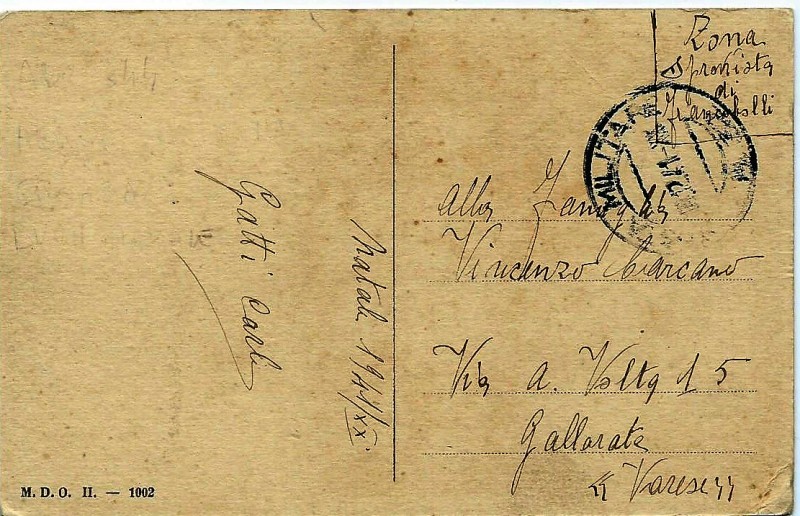 Zona
Sprovvista
di
Francobolli
MILITARE
Gatti Carlo
Natale 1941/XX
alla Famiglia
Vincenzo Marcano
Via A. Volta 15
Gallarate
"Varese"
M. D. O. II. — 1002